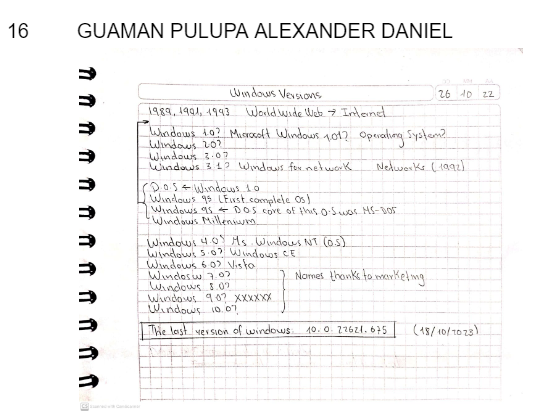 16 GUAMAN PULUPA ALEXANDER DANIEL
Windows Versions
26 10 22
1989, 1991, 1993 World Wide Web → Internet
Windows 1.0? Microsoft Windows 1.01? Operating System?
Windows 2.0?
Windows 3.0?
Windows 3.1? Windows for network Networks (1992)
D.O.S ← Windows 1.0
Windows 95 (First complete OS)
Windows 95 ← DOS core of this O.S was MS-DOS
Windows Millenium
Windows 4.0? Ms. Windows NT (O.S)
Windows 5.0? Windows CE
Windows 6.0? Vista
Windows 7.0? Names thanks to marketing
Windows 8.0?
Windows 9.0? XXXXXX
Windows 10.0?
The last version of windows: 10.0.22621.675 (18/10/2023)